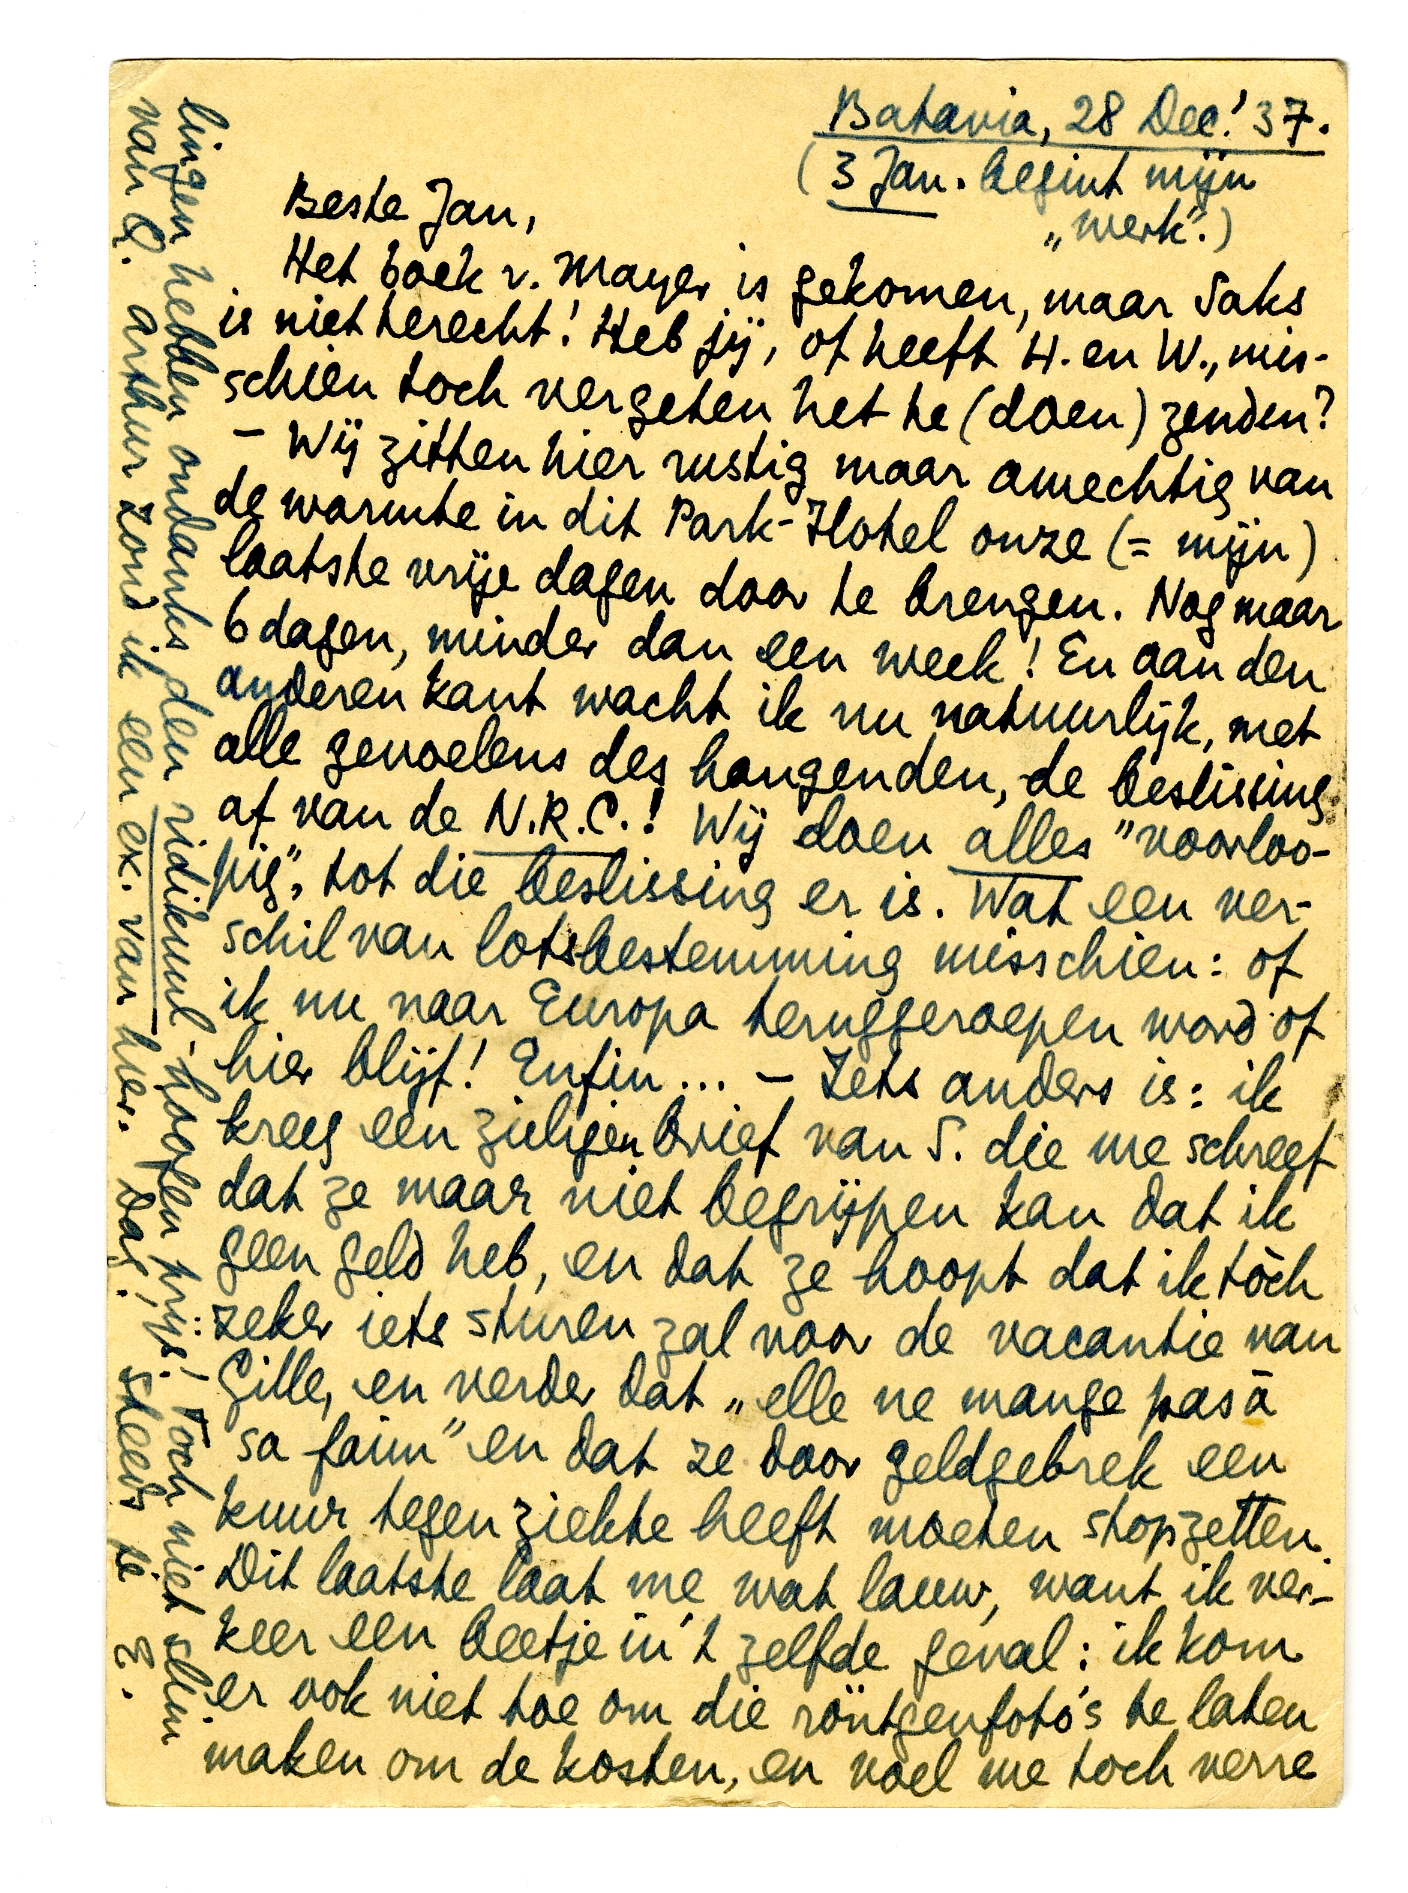 Batavia, 28 Dec.' 37.
(3 Jan. begint mijn
„werk”.)
Beste Jan,
Het boek v. Mayer is gekomen, maar Saks
is niet terecht! Heb jij, of heeft H. en W., mis-
schien toch vergeten het te (doen) zenden?
– Wij zitten hier rustig maar amechtig van
de warmte in dit Park-Hotel onze (= mijn)
laatste vrije dagen door te brengen. Nog maar
6 dagen, minder dan een week! En aan den
anderen kant wacht ik nu natuurlijk, met
alle gevoelens des hangenden, de beslissing
af van de N.R.C.! Wij doen alles "voorloo-
pig", tot die beslissing er is. Wat een ver-
schil van lotsbestemming misschien: of
ik nu naar Europa teruggeroepen word of
hier blijf! Enfin... – Iets anders is: ik
kreeg een zieligen brief van S. die me schreef
dat ze maar niet begrijpen kan dat ik
geen geld heb, en dat ze hoopt dat ik tòch
zeker iets sturen zal voor de vacantie van
Gille, en verder dat „elle ne mange pas à
sa faim” en dat ze door geldgebrek een
kuur tegen ziekte heeft moeten stopzetten.
Dit laatste laat me wat lauw, want ik ver-
keer een beetje in 't zelfde geval: ik kom
er ook niet toe om die röntgenfoto's te laten
maken om de kosten, en voel me toch verre
lingen hebben ondanks den ridikuul-hoogen prijs! Toch niet slim
van Q. Arthur zond ik een ex. van hier. Dag! Steeds je E.